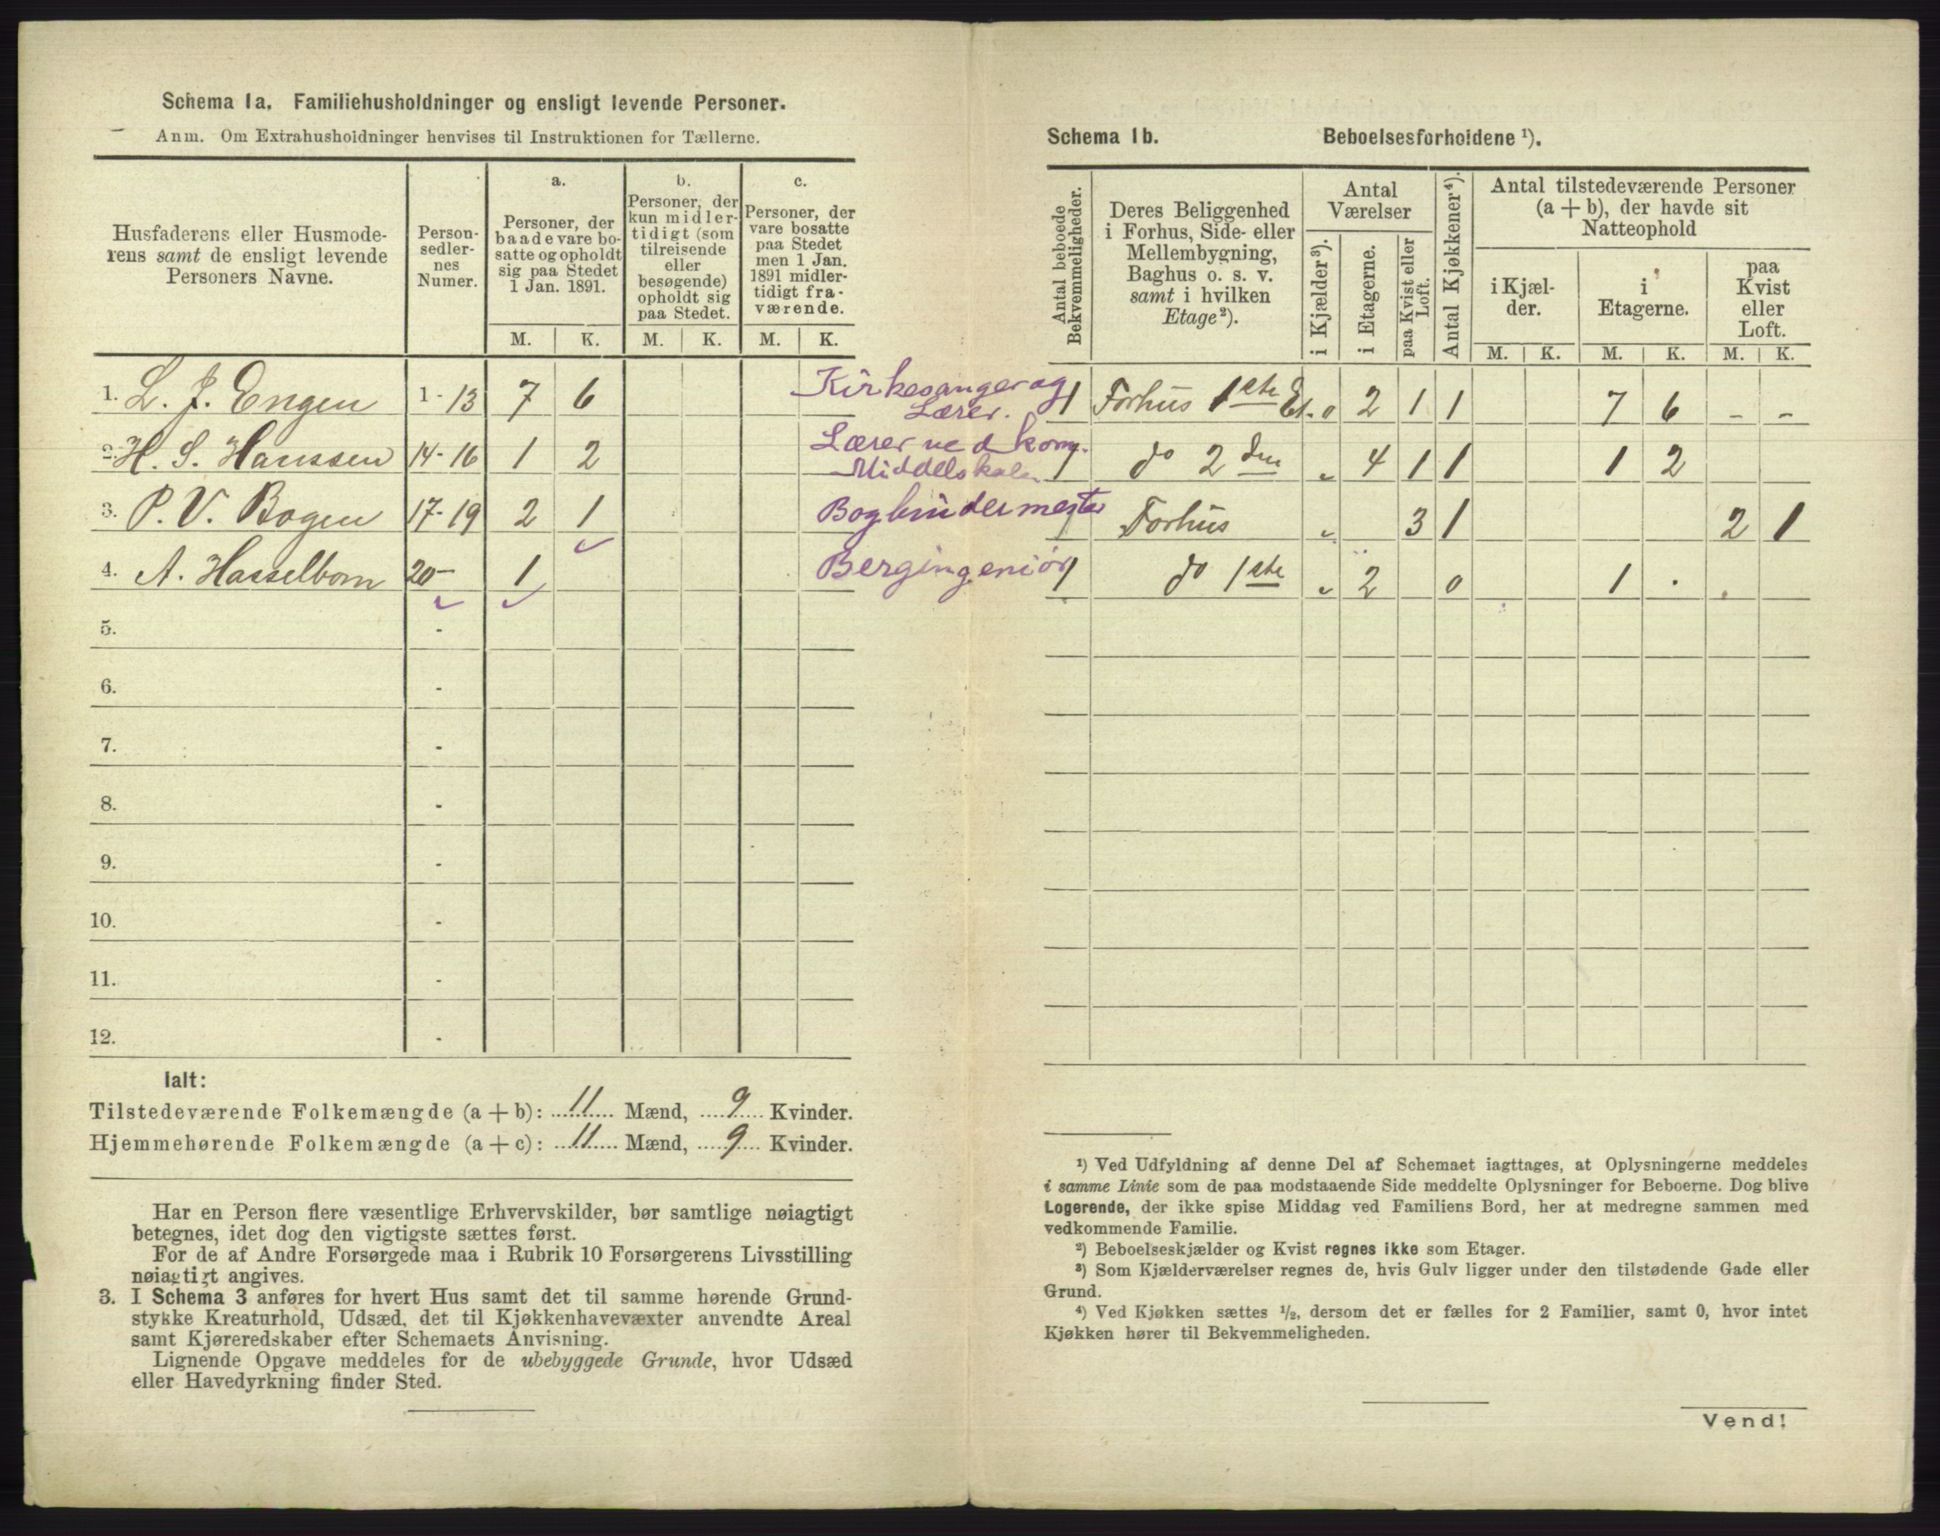 Schema 1a. Familiehusholdninger og ensligt levende Personer.
Anm. Om Extrahusholdninger henvises til Instruktionen for Tællerne.
Husfaderens eller Husmode-
rens samt de ensligt levende
Personers Navne.
Person-
sedler-
nes
Numer.
a.
Personer, der
baade vare bo-
satte og opholdt
sig paa Stedet
1 Jan. 1891.
b.
Personer, der
kun midler-
tidigt (som
tilreisende
eller
besøgende)
opholdt sig
paa Stedet.
c.
Personer, der
vare bosatte
paa Stedet
men 1 Jan.
1891 midler-
tidigt fra-
værende.
M. K. M. K. M. K.
1. L. J. Engen 1-13 7 6 Kirkesanger og
Lærer.
2. H. S. Hanssen 14-16 1 2 Lærer ved kom.
Middelskolen
3. P. V. Bogen 17-19 2 1 Bogbindermester
4. A. Hasselbom 20- 1 Bergingeniør
5. -
6. -
7. -
8. -
9. -
10. -
11. -
12. -
Ialt:
Tilstedeværende Folkemængde (a + b): 11 Mænd, 9 Kvinder.
Hjemmehørende Folkemængde (a + c): 11 Mænd, 9 Kvinder.
Har en Person flere væsentlige Erhvervskilder, bør samtlige nøiagtigt
betegnes, idet dog den vigtigste sættes først.
For de af Andre Forsørgede maa i Rubrik 10 Forsørgerens Livsstilling
nøiagtigt angives.
3. I Schema 3 anføres for hvert Hus samt det til samme hørende Grund-
stykke Kreaturhold, Udsæd, det til Kjøkkenhavevæxter anvendte Areal
samt Kjøreredskaber efter Schemaets Anvisning.
Lignende Opgave meddeles for de ubebyggede Grunde, hvor Udsæd
eller Havedyrkning finder Sted.
Schema 1b. Beboelsesforholdene ¹).
Antal beboede
Bekvemmeligheder.
Deres Beliggenhed
i Forhus, Side- eller
Mellembygning,
Baghus o. s. v.
samt i hvilken
Etage²).
Antal
Værelser
i Kjælder³).
i Etagerne.
paa Kvist eller
Loft.
Antal Kjøkkener⁴).
Antal tilstedeværende Personer
(a + b), der havde sit
Natteophold
i Kjæl-
der.
i
Etagerne.
paa
Kvist
eller
Loft.
M. K. M. K. M. K.
1 Forhus 1ste Et. 0 2 1 1 7 6 - -
1 do 2den " 4 1 1 1 2
1 Forhus " 3 1 2 1
1 do 1ste " 2 0 1 .
¹) Ved Udfyldning af denne Del af Schemaet iagttages, at Oplysningerne meddeles
i samme Linie som de paa modstaaende Side meddelte Oplysninger for Beboerne. Dog blive
Logerende, der ikke spise Middag ved Familiens Bord, her at medregne sammen med
vedkommende Familie.
²) Beboelseskjælder og Kvist regnes ikke som Etager.
³) Som Kjælderværelser regnes de, hvis Gulv ligger under den tilstødende Gade eller
Grund.
⁴) Ved Kjøkken sættes ½, dersom det er fælles for 2 Familier, samt 0, hvor intet
Kjøkken hører til Bekvemmeligheden.
Vend!